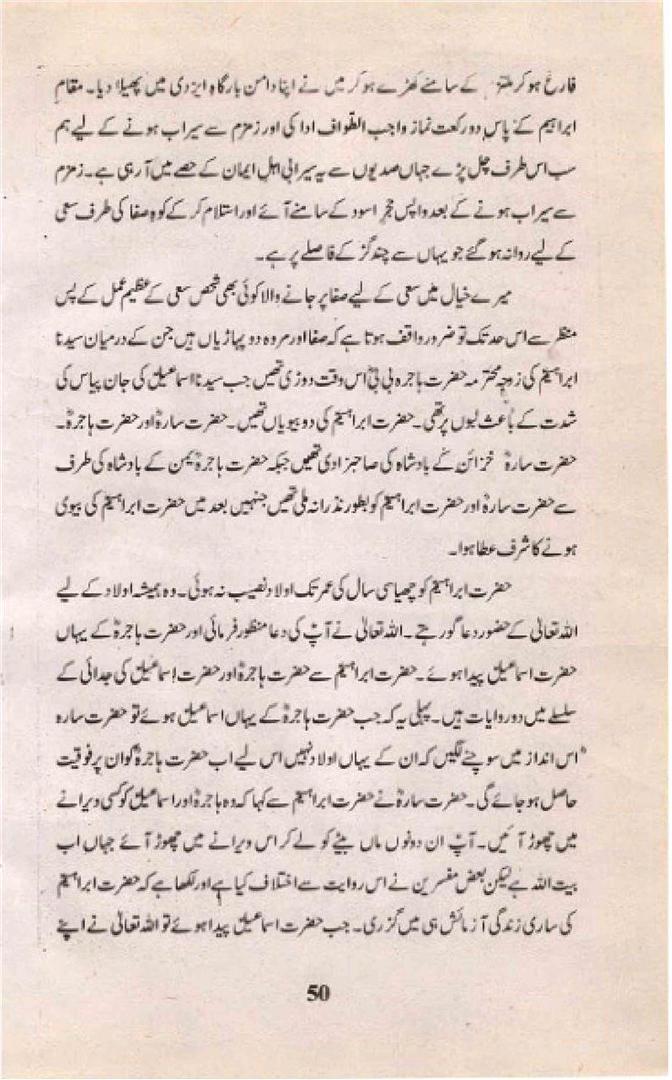 فارغ ہو کر ملتزم کے سامنے کھڑے ہو کر میں نے اپنا دامن بارگاہِ ایزدی میں پھیلا دیا۔ مقامِ
ابراہیم کے پاس دو رکعت نماز واجب الطواف ادا کی اور زمزم سے سیراب ہونے کے لیے ہم
سب اس طرف چل پڑے جہاں صدیوں سے یہ سیرابی اہلِ ایمان کے حصے میں آ رہی ہے۔ زمزم
سے سیراب ہونے کے بعد واپس حجرِ اسود کے سامنے آئے اور استلام کر کے کوہِ صفا کی طرف سعی
کے لیے روانہ ہو گئے جو یہاں سے چند گز کے فاصلے پر ہے۔
میرے خیال میں سعی کے لیے صفا پر جانے والا کوئی بھی شخص سعی کے عظیم عمل کے پس
منظر سے اس حد تک تو ضرور واقف ہوتا ہے کہ صفا اور مروہ دو پہاڑیاں ہیں جن کے درمیان سیدنا
ابراہیمؑ کی زوجہ محترمہ حضرت ہاجرہ بی بیؓ اس وقت دوڑی تھیں جب سیدنا اسماعیلؑ کی جان پیاس کی
شدت کے باعث لبوں پر تھی۔ حضرت ابراہیمؑ کی دو بیویاں تھیں۔ حضرت سارہؓ اور حضرت ہاجرہؓ۔
حضرت سارہؓ خزائن کے بادشاہ کی صاحبزادی تھیں جبکہ حضرت ہاجرہؓ یمن کے بادشاہ کی طرف
سے حضرت سارہؓ اور حضرت ابراہیمؑ کو بطور نذرانہ ملی تھیں جنہیں بعد میں حضرت ابراہیمؑ کی بیوی
ہونے کا شرف عطا ہوا۔
حضرت ابراہیمؑ کو چھیاسی سال کی عمر تک اولاد نصیب نہ ہوئی۔ وہ ہمیشہ اولاد کے لیے
اللہ تعالیٰ کے حضور دعا گو رہتے۔ اللہ تعالیٰ نے آپؑ کی دعا منظور فرمائی اور حضرت ہاجرہؓ کے یہاں
حضرت اسماعیلؑ پیدا ہوئے۔ حضرت ابراہیمؑ سے حضرت ہاجرہؓ اور حضرت اسماعیلؑ کی جدائی کے
سلسلے میں دو روایات ہیں۔ پہلی یہ کہ جب حضرت ہاجرہؓ کے یہاں اسماعیلؑ ہوئے تو حضرت سارہ
اس انداز میں سوچنے لگیں کہ ان کے یہاں اولاد نہیں اس لیے اب حضرت ہاجرہؓ کو ان پر فوقیت
حاصل ہو جائے گی۔ حضرت سارہؓ نے حضرت ابراہیمؑ سے کہا کہ وہ ہاجرہؓ اور اسماعیلؑ کو کسی ویرانے
میں چھوڑ آئیں۔ آپؑ ان دونوں ماں بیٹے کو لے کر اس ویرانے میں چھوڑ آئے جہاں اب
بیت اللہ ہے لیکن بعض مفسرین نے اس روایت سے اختلاف کیا ہے اور لکھا ہے کہ حضرت ابراہیمؑ
کی ساری زندگی آزمائش ہی میں گزری۔ جب حضرت اسماعیلؑ پیدا ہوئے تو اللہ تعالیٰ نے اپنے
50